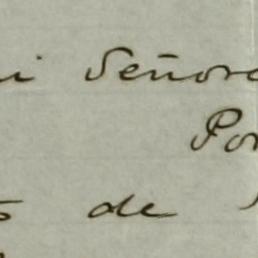 i Señora
Por
de